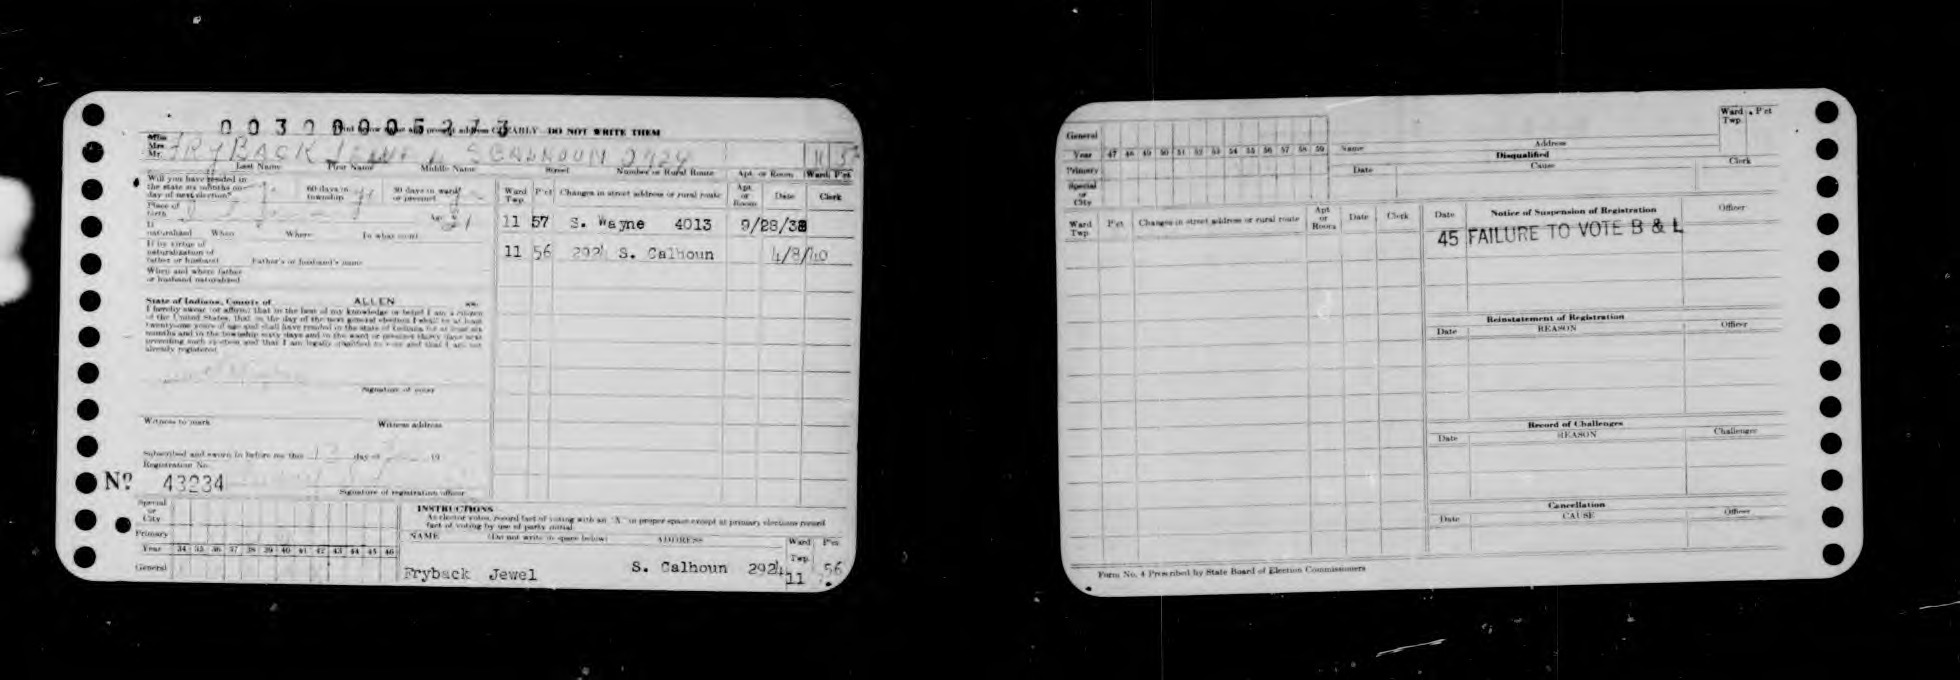 0 0 3 2 0 0 0 5 2 7 3
DO NOT WRITE THEM
Miss
Mrs.
Mr. FRYBACK S CALHOUN 2924 11
Last Name First Name Middle Name Street Number or Rural Route Apt. or Room Ward P'ct
Will you have resided in
the state six months on
day of next election?
60 days in
township
30 days in ward
or precinct
Place of
birth
Age 21
If
naturalized When Where To what court
If by virtue of
naturalization of
father or husband Father's or husband's name
When and where father
or husband naturalized
State of Indiana, County of ALLEN ss.
I hereby swear (or affirm) that to the best of my knowledge or belief I am a citizen
of the United States, that on the day of the next general election I shall be at least
twenty-one years of age and shall have resided in the state of Indiana for at least six
months and in the township sixty days and in the ward or precinct thirty days next
preceding such election and that I am legally qualified to vote and that I am not
already registered.
Signature of voter
Witness to mark Witness address
Subscribed and sworn to before me this day of 19
Registration No.
No 43234
Signature of registration officer
Ward
Twp. P'ct Changes in street address or rural route Apt.
or
Room Date Clerk
11 57 S. Wayne 4013 9/28/38
11 56 2924 S. Calhoun 4/8/40
Special
or
City
Primary
Year 34 35 36 37 38 39 40 41 42 43 44 45 46
General
INSTRUCTIONS
As elector votes, record fact of voting with an "X" in proper space except at primary elections record
fact of voting by use of party initial.
NAME (Do not write in space below) ADDRESS Ward
Twp. P'ct
Fryback Jewel S. Calhoun 2924 11 56
General
Year 47 48 49 50 51 52 53 54 55 56 57 58 59
Primary
Special
or
City
Ward
Twp. P'ct
Name Address
Disqualified
Date Cause Clerk
Ward
Twp. P'ct Changes in street address or rural route Apt.
or
Room Date Clerk
Date Notice of Suspension of Registration Officer
45 FAILURE TO VOTE B & L
Reinstatement of Registration
Date REASON Officer
Record of Challenges
Date REASON Challenger
Cancellation
Date CAUSE Officer
Form No. 4 Prescribed by State Board of Election Commissioners